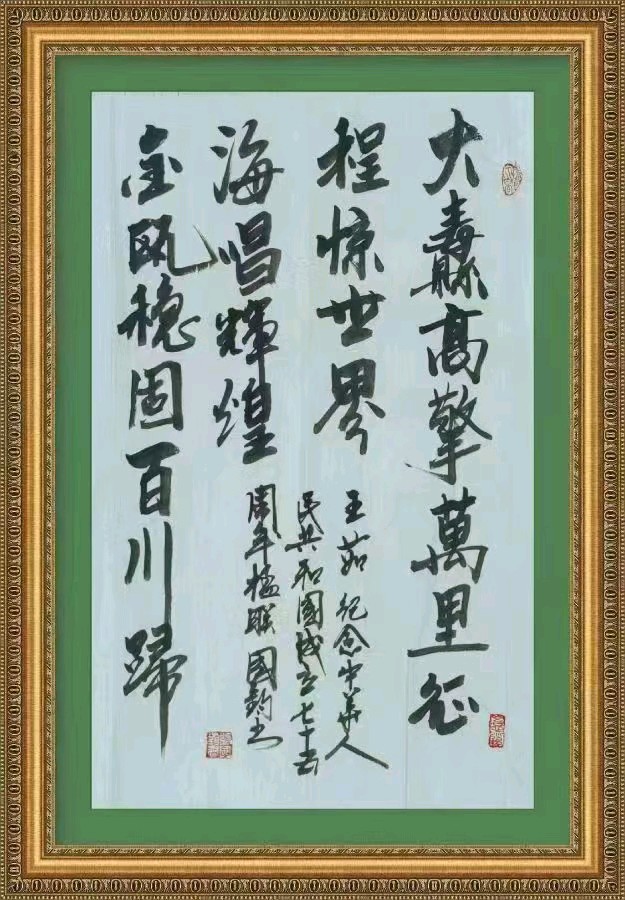 大纛高擎萬里征
程惊世界
王茹 纪念中華人
民共和國成立七十五
周年楹联 國书
金瓯稳固百川歸
海唱輝煌